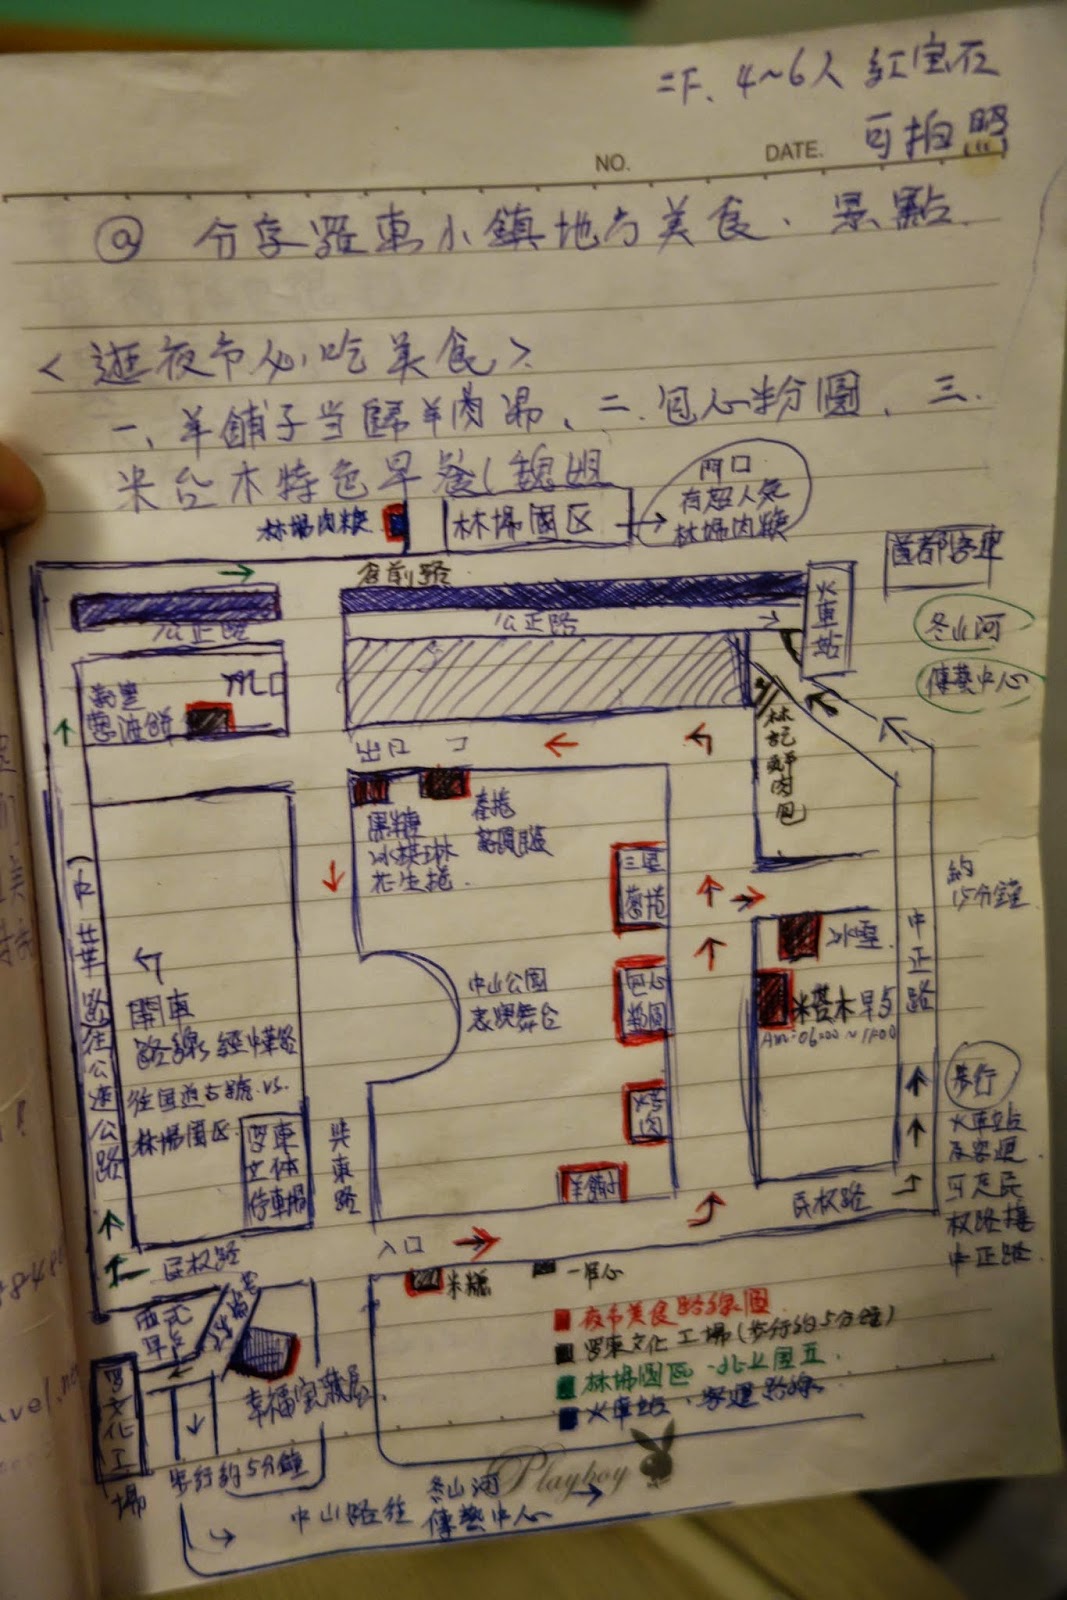 二F. 4~6人 紅宝石
可拍照
NO. DATE.
@ 分享羅東小鎮地方美食、景點
<逛夜市必吃美食>
一、羊鋪子当歸羊肉湯、二、包心粉圓、三、
米台木特色早餐(魏姐
門口
有超人気
林場肉羹
林場肉羹
林場園区
首都客運
舍前路
火車站
公正路
公正路
冬山河
傳藝中心
葱油餅
出口
口
林記鮮肉包
黑糖
冰淇琳
花生捲.
春捲
三星
葱捲
約
15分鐘
中正路
冰雪
中山公園
表演舞台
包心
粉圓
米塔木早点
Am:06:00~11:00
中華路往公速公路
開車
路線經中華路
往国道5號 vs.
林場園区
罗東
立体
停車場
興東路
烤肉
步行
火車站
及客運
可走民
权路接
中正路
羊鋪
民权路
入口
民权路
米糕
一、点心
西式
早点
夜市美食路線圖
罗東文化工場(步行約5分鐘)
林場園区、北上国五.
火車站、客運路線
幸福宝藏屋
罗文化工場
步行約5分鐘
Playboy
中山路往
冬山河
傳藝中心